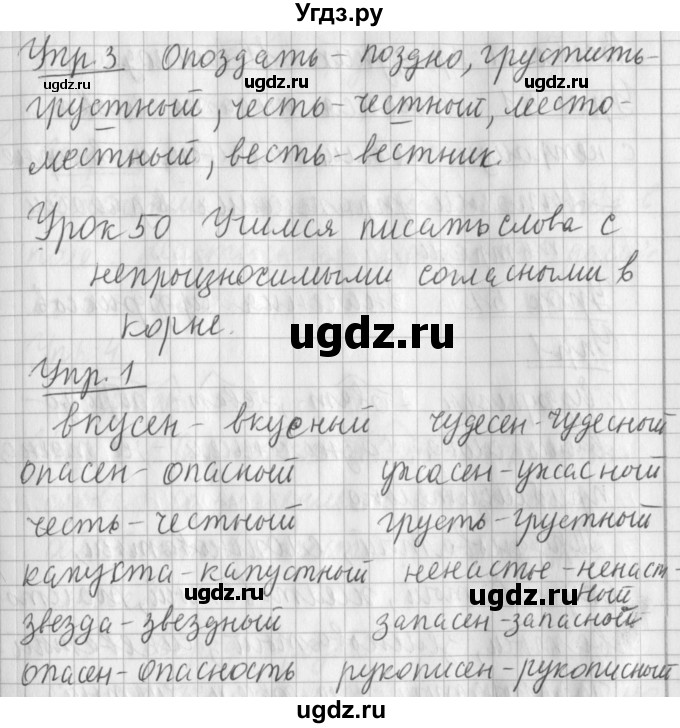 Угдз.ру
Упр. 3 Опоздать - поздно, грустить -
ugdz.ru ugdz.ru
грустный, честь - честный, место -
местный, весть - вестник.
Урок 50 Учимся писать слова с
непроизносимыми согласными в
корне.
ugdz.ru
Упр. 1
вкусен - вкусный чудесен - чудесный
опасен - опасный ужасен - ужасный
честь - честный грусть - грустный
капуста - капустный ненастье - ненаст-
ный
ugdz.ru ugdz.ru
звезда - звездный запасен - запасной
опасен - опасность рукописен - рукописный
ugdz.ru